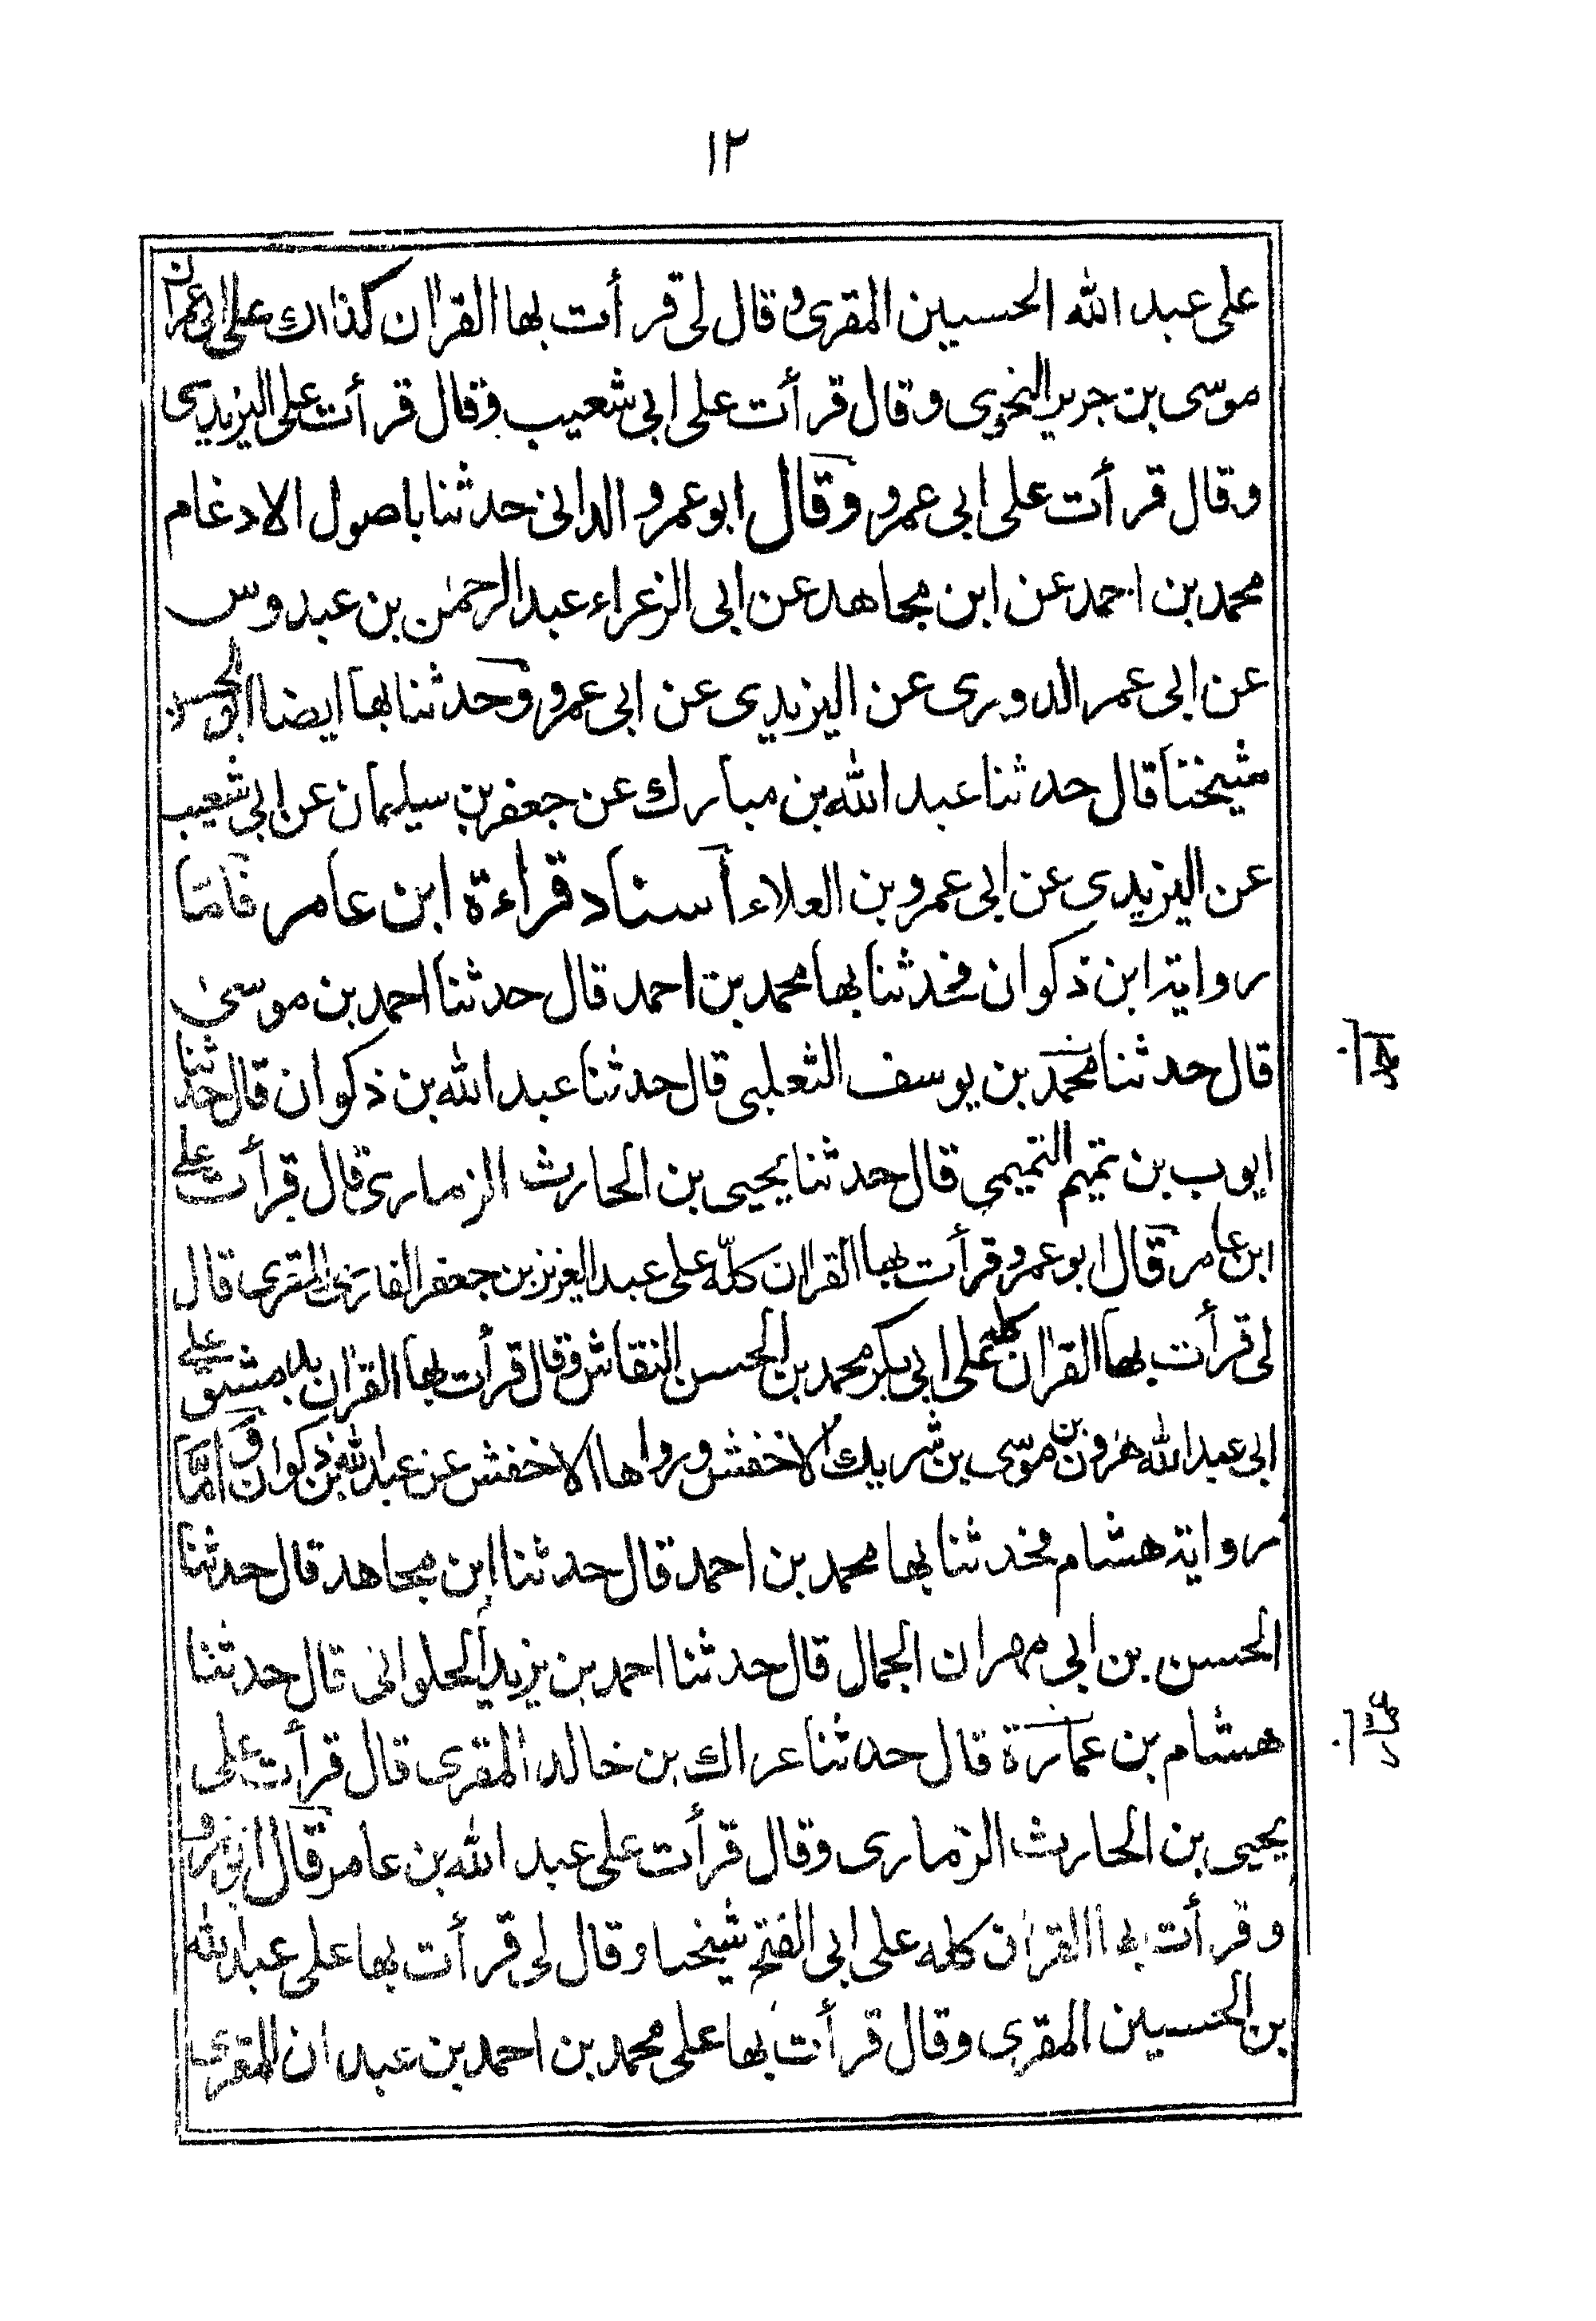 ١٢
على عبد الله الحسيين المقرى وقال لى قرأت بها القران كذلك على ابى عمران
موسى بن جرير النحوى وقال قرأت على ابى شعيب وقال قرأت على اليزيدى
وقال قرأت على ابى عمرو وقال ابو عمرو الدانى حدثنا باصول الادغام
محمد بن احمد عن ابن مجاهد عن ابى الزعراء عبد الرحمٰن بن عبدوس
عن ابى عمر الدورى عن اليزيدى عن ابى عمرو وحدثنا بها ايضا ابو الحسن
شيخنا قال حدثنا عبد الله بن مبارك عن جعفر بن سيلمان عن ابى شعيب
عن اليزيدى عن ابى عمرو بن العلاء أسناد قراءة ابن عامر فامّا
رواية ابن ذكوان فحدثنا بها محمد بن احمد قال حدثنا احمد بن موسى
قال حدثنا محمد بن يوسف الثعلبى قال حدثنا عبد الله بن ذكوان قال حدثنا
ايوب بن تميم التميمى قال حدثنا يحيى بن الحارث الزمارى قال قرأت على
ابن عامر قال ابو عمرو قرأت بها القران كلّه على عبد العزيز بن جعفر الفارسى المقرى قال
لى قرأت بها القران كله على ابى بكر محمد بن الحسن النقاش وقال قرأت بها القران بدمشق على
ابى عبد الله هٰرون بن موسى بن شريك الاخفش ورواها الاخفش عن عبد الله بن ذكوان وامّا
رواية هشام فحدثنا بها محمد بن احمد قال حدثنا ابن مجاهد قال حدثنا
الحسن بن ابى مهران الجمال قال حدثنا احمد بن يزيد الحلوانى قال حدثنا
هشام بن عمارة قال حدثنا عراك بن خالد المقرى قال قرأت على
يحيى بن الحارث الزمارى وقال قرأت على عبد الله بن عامر قال ابو عمرو
وقرأت بها القران كله على ابى الفتح شيخنا وقال لى قرأت بها على عبد الله
بن الحسيين المقرى وقال قرأت بها على محمد بن احمد بن عبدان المقرى